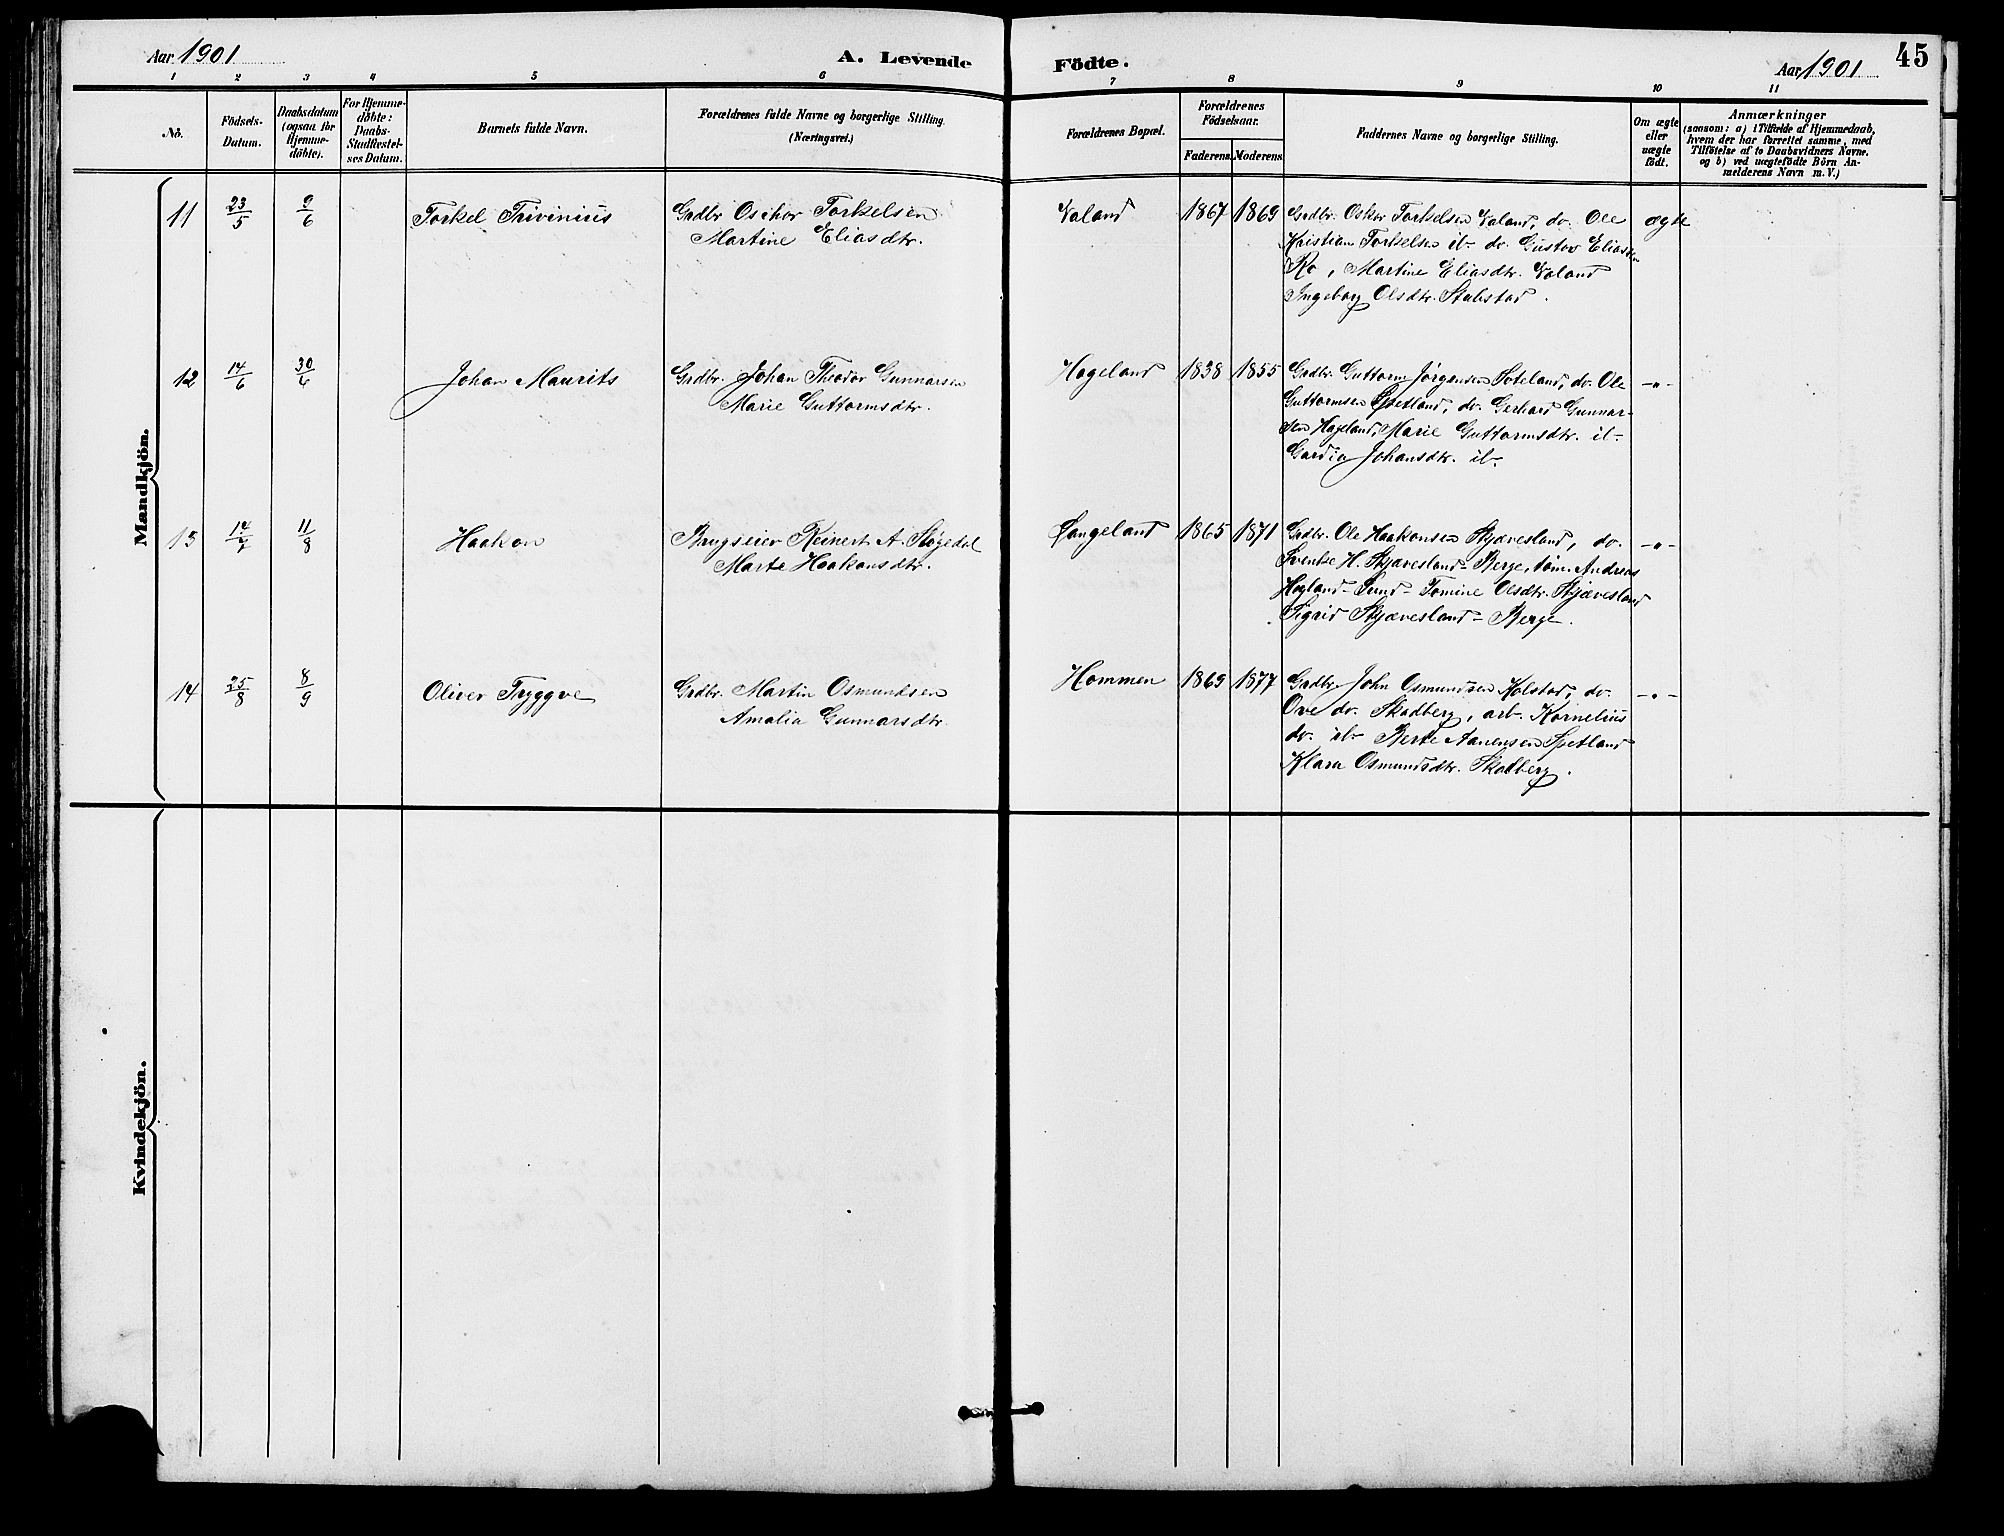 Aar 1901
A. Levende Födte.
Aar 1901
45
1 2 3 4 5 6 7 8 9 10 11
No.
Födsels-Datum.
Daabsdatum (ogsaa for Hjemme-döbte).
For Hjemme-döbte: Daabs-Stadfæstel-ses Datum.
Barnets fulde Navn.
Forældrenes fulde Navne og borgerlige Stilling. (Næringsvei.)
Forældrenes Bopæl.
Forældrenes Födselsaar.
Faderens. Moderens.
Faddernes Navne og borgerlige Stilling.
Om ægte eller uægte födt.
Anmærkninger
(saasom: a) i Tilfælde af Hjemmedaab,
hvem der har forrettet samme, med
Tilföielse af to Daabsvidners Navne.
og b) ved uægtefödte Börn An-
melderens Navn m. V.)
Mandkjön.
11 23/5 9/6 Torkel Trivinius Grdbr Oskar Torkelsen
Martine Eliasdtr.
Valand 1867 1869 Grdbr. Oskar Torkelsen Valand, do. Ole ægte
Kristian Torkelsen ib- do. Gustav Eliassen
Ro, Martine Eliasdtr. Valand
Ingeborg Olsdtr. Stubstad.
12 14/6 30/6 Johan Maurits Grdbr. Johan Theodor Gunnarsen
Marie Guttormsdtr.
Hageland 1838 1855 Grdbr. Guttorm Jørgensen Foteland, do. Ole -"-
Guttormsen Spetland, do. Gerhard Gunnar-
sen Hageland, Marie Guttormsdtr. ib-
Gardia Johansdtr. ib-
13 14/7 11/8 Haakon Brugseier Reinert A. Støgedal
Marte Haakonsdtr.
Øangeland 1865 1871 Grdbr. Ole Haakonsen Skjævesland, do. -"-
Svenke H. Skjævesland-Berge, tøm. Andreas
Høgland-Sund- Tomine Olsdtr. Skjævesland
Sigrid Skjævesland-Berge.
14 25/8 8/9 Oliver Tryggve Grdbr. Martin Osmundsen
Amalia Gunnarsdtr.
Hommen 1869 1877 Grdbr. John Osmundsen Holstad, do. -"-
Ove do. Skadberg, arb. Kornelius
do. ib- Berte Aanensen Spetland
Klara Osmundsdtr. Skadberg.
Kvindekjön.